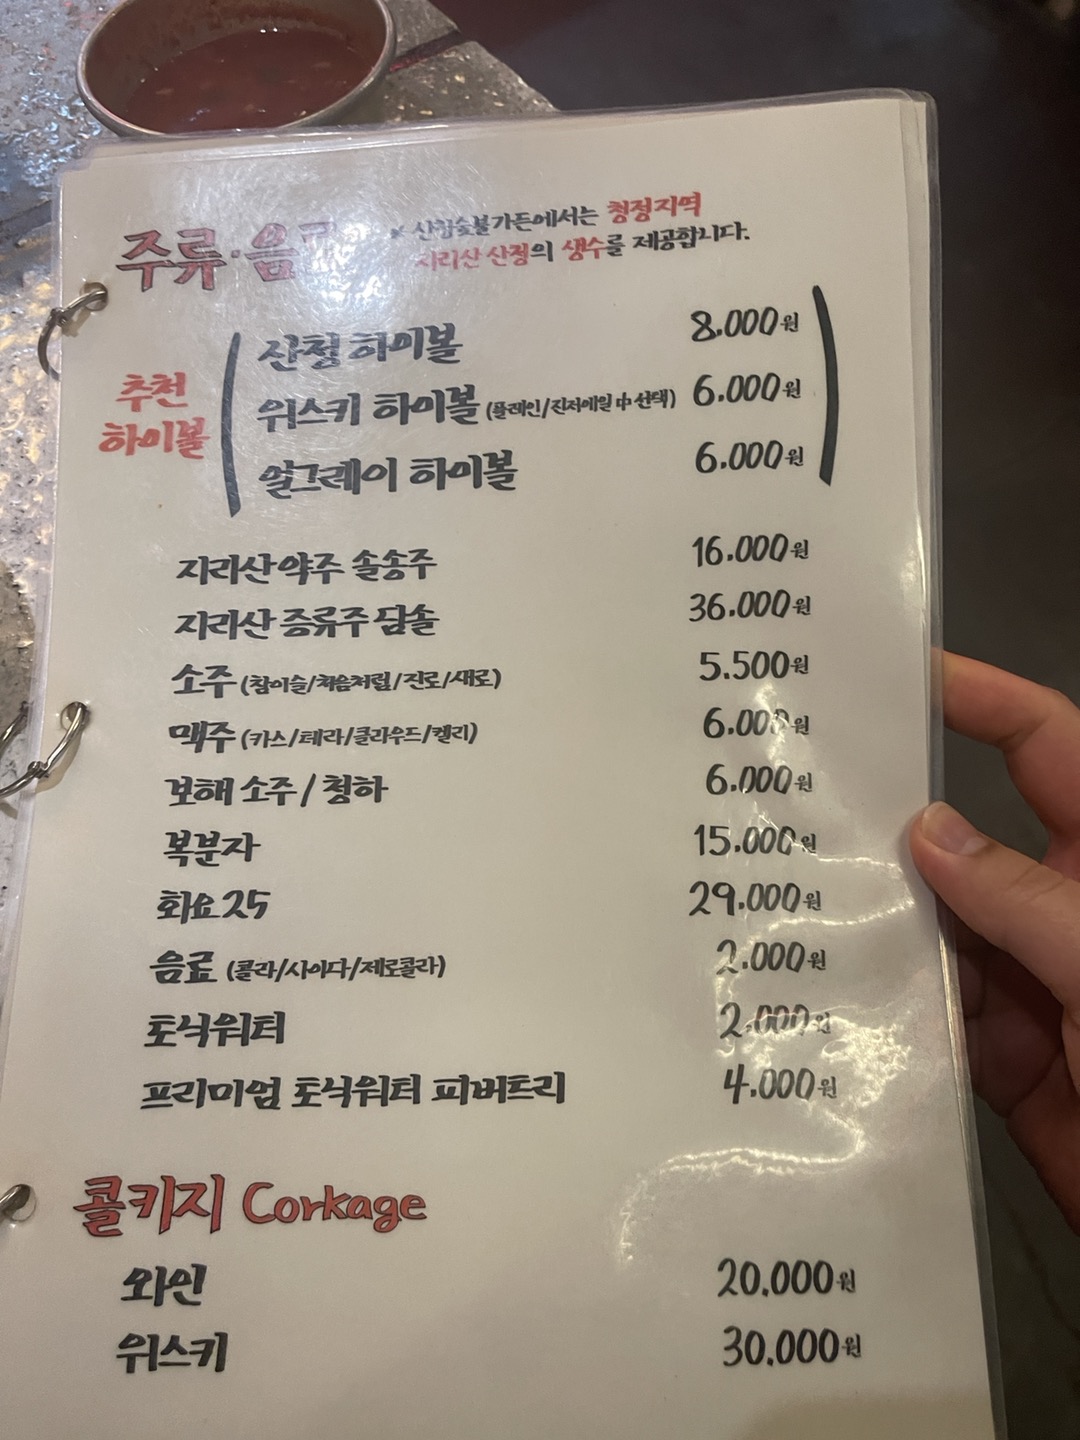 주류·음료
* 산청숯불가든에서는 청정지역
지리산 산청의 생수를 제공합니다.
추천
하이볼
산청 하이볼 8.000원
위스키 하이볼 (플레인/진저에일 中 선택) 6.000원
얼그레이 하이볼 6.000원
지리산 약주 솔송주 16.000원
지리산 증류주 담솔 36.000원
소주 (참이슬/처음처럼/진로/새로) 5.500원
맥주 (카스/테라/클라우드/켈리) 6.000원
보해 소주 / 청하 6.000원
복분자 15.000원
화요25 29.000원
음료 (콜라/사이다/제로콜라) 2.000원
토닉워터 2.000원
프리미엄 토닉워터 피버트리 4.000원
콜키지 Corkage
와인 20.000원
위스키 30.000원